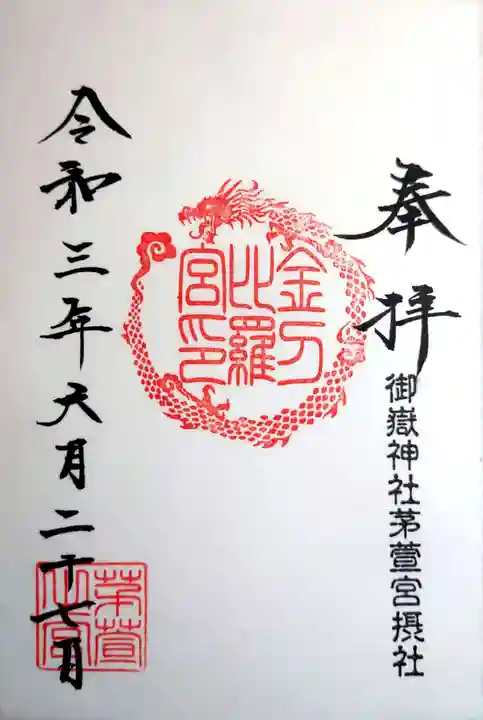 奉拝
御嶽神社茅萱宮摂社
金刀
比羅
宮印
令和三年六月二十七日
茅萱
之宮